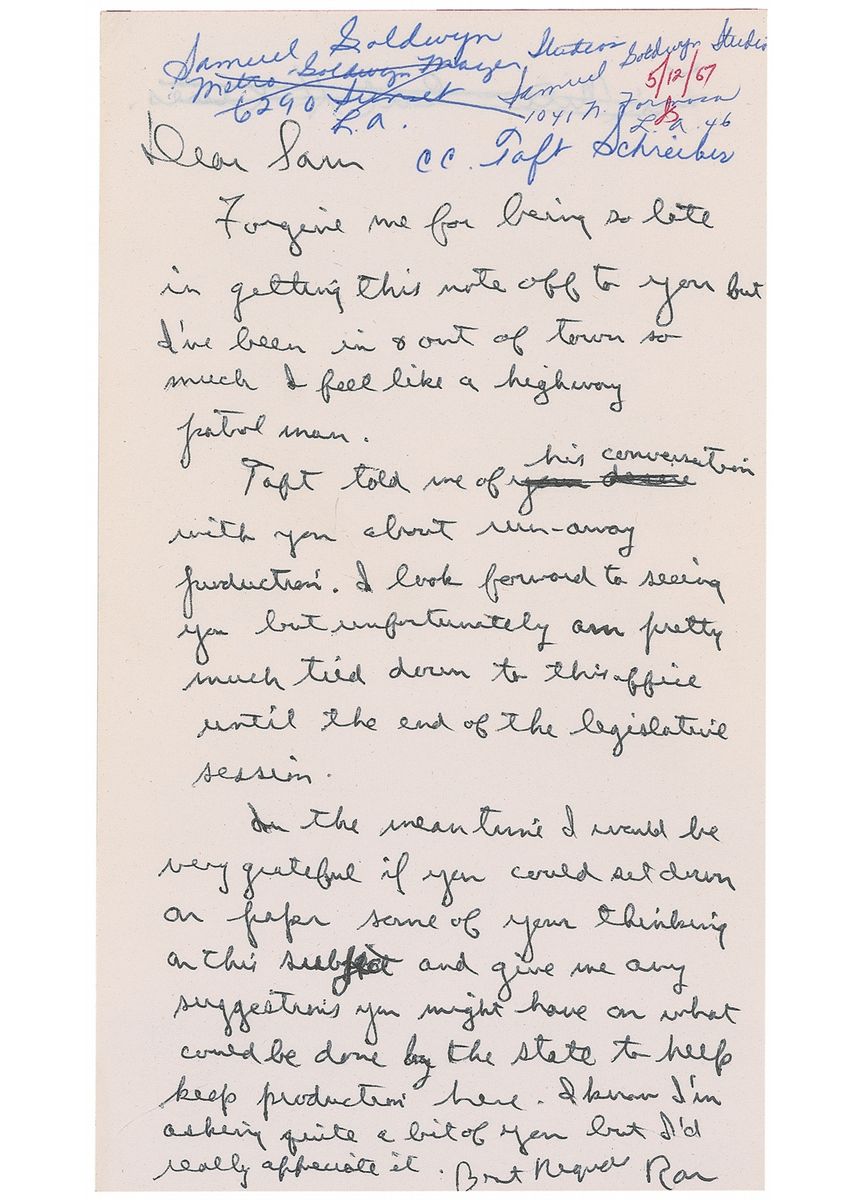 Samuel Goldwyn Studios
Metro-Goldwyn Mayer Samuel Goldwyn Studios
6290 Sunset 1041 N. Formosa
L.A. L.A. 46
5/12/67
Dear Sam cc. Taft Schreiber
Forgive me for being so late
in getting this note off to you but
I've been in & out of town so
much I feel like a highway
patrol man.
Taft told me of your desire his conversation
with you about run-away
production. I look forward to seeing
you but unfortunately am pretty
much tied down to this office
until the end of the legislative
session.
In the meantime I would be
very grateful if you could set down
on paper some of your thinking
on this subject and give me any
suggestions you might have on what
could be done by the state to help
keep production here. I know I'm
asking quite a bit of you but I'd
really appreciate it. Best Regards Ron